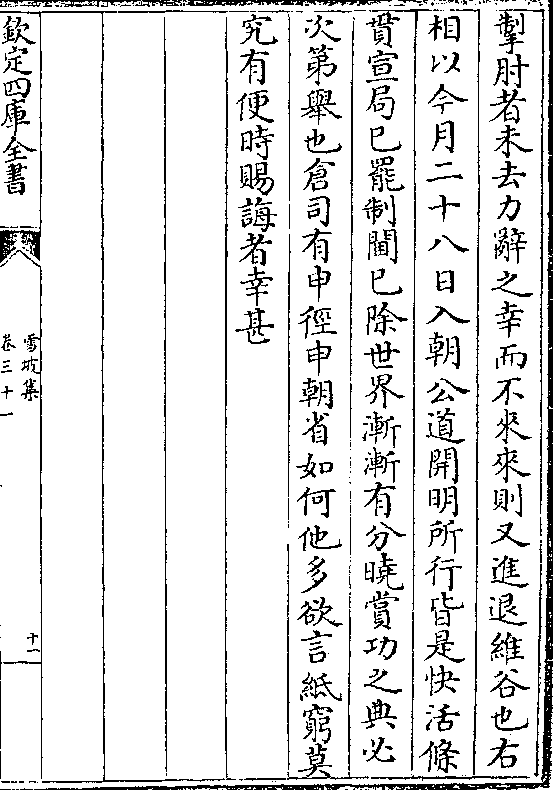 掣肘者未去力辭之幸而不來來則又進退維谷也右
相以今月二十八日入朝公道開明所行皆是快活條
貫宣局已罷制閫已除世界漸漸有分曉賞功之典必
次第舉也倉司有申徑申朝省如何他多欲言紙窮莫
究有便時賜誨者幸甚
欽定四庫全書
雪坡集
卷三十一
十一